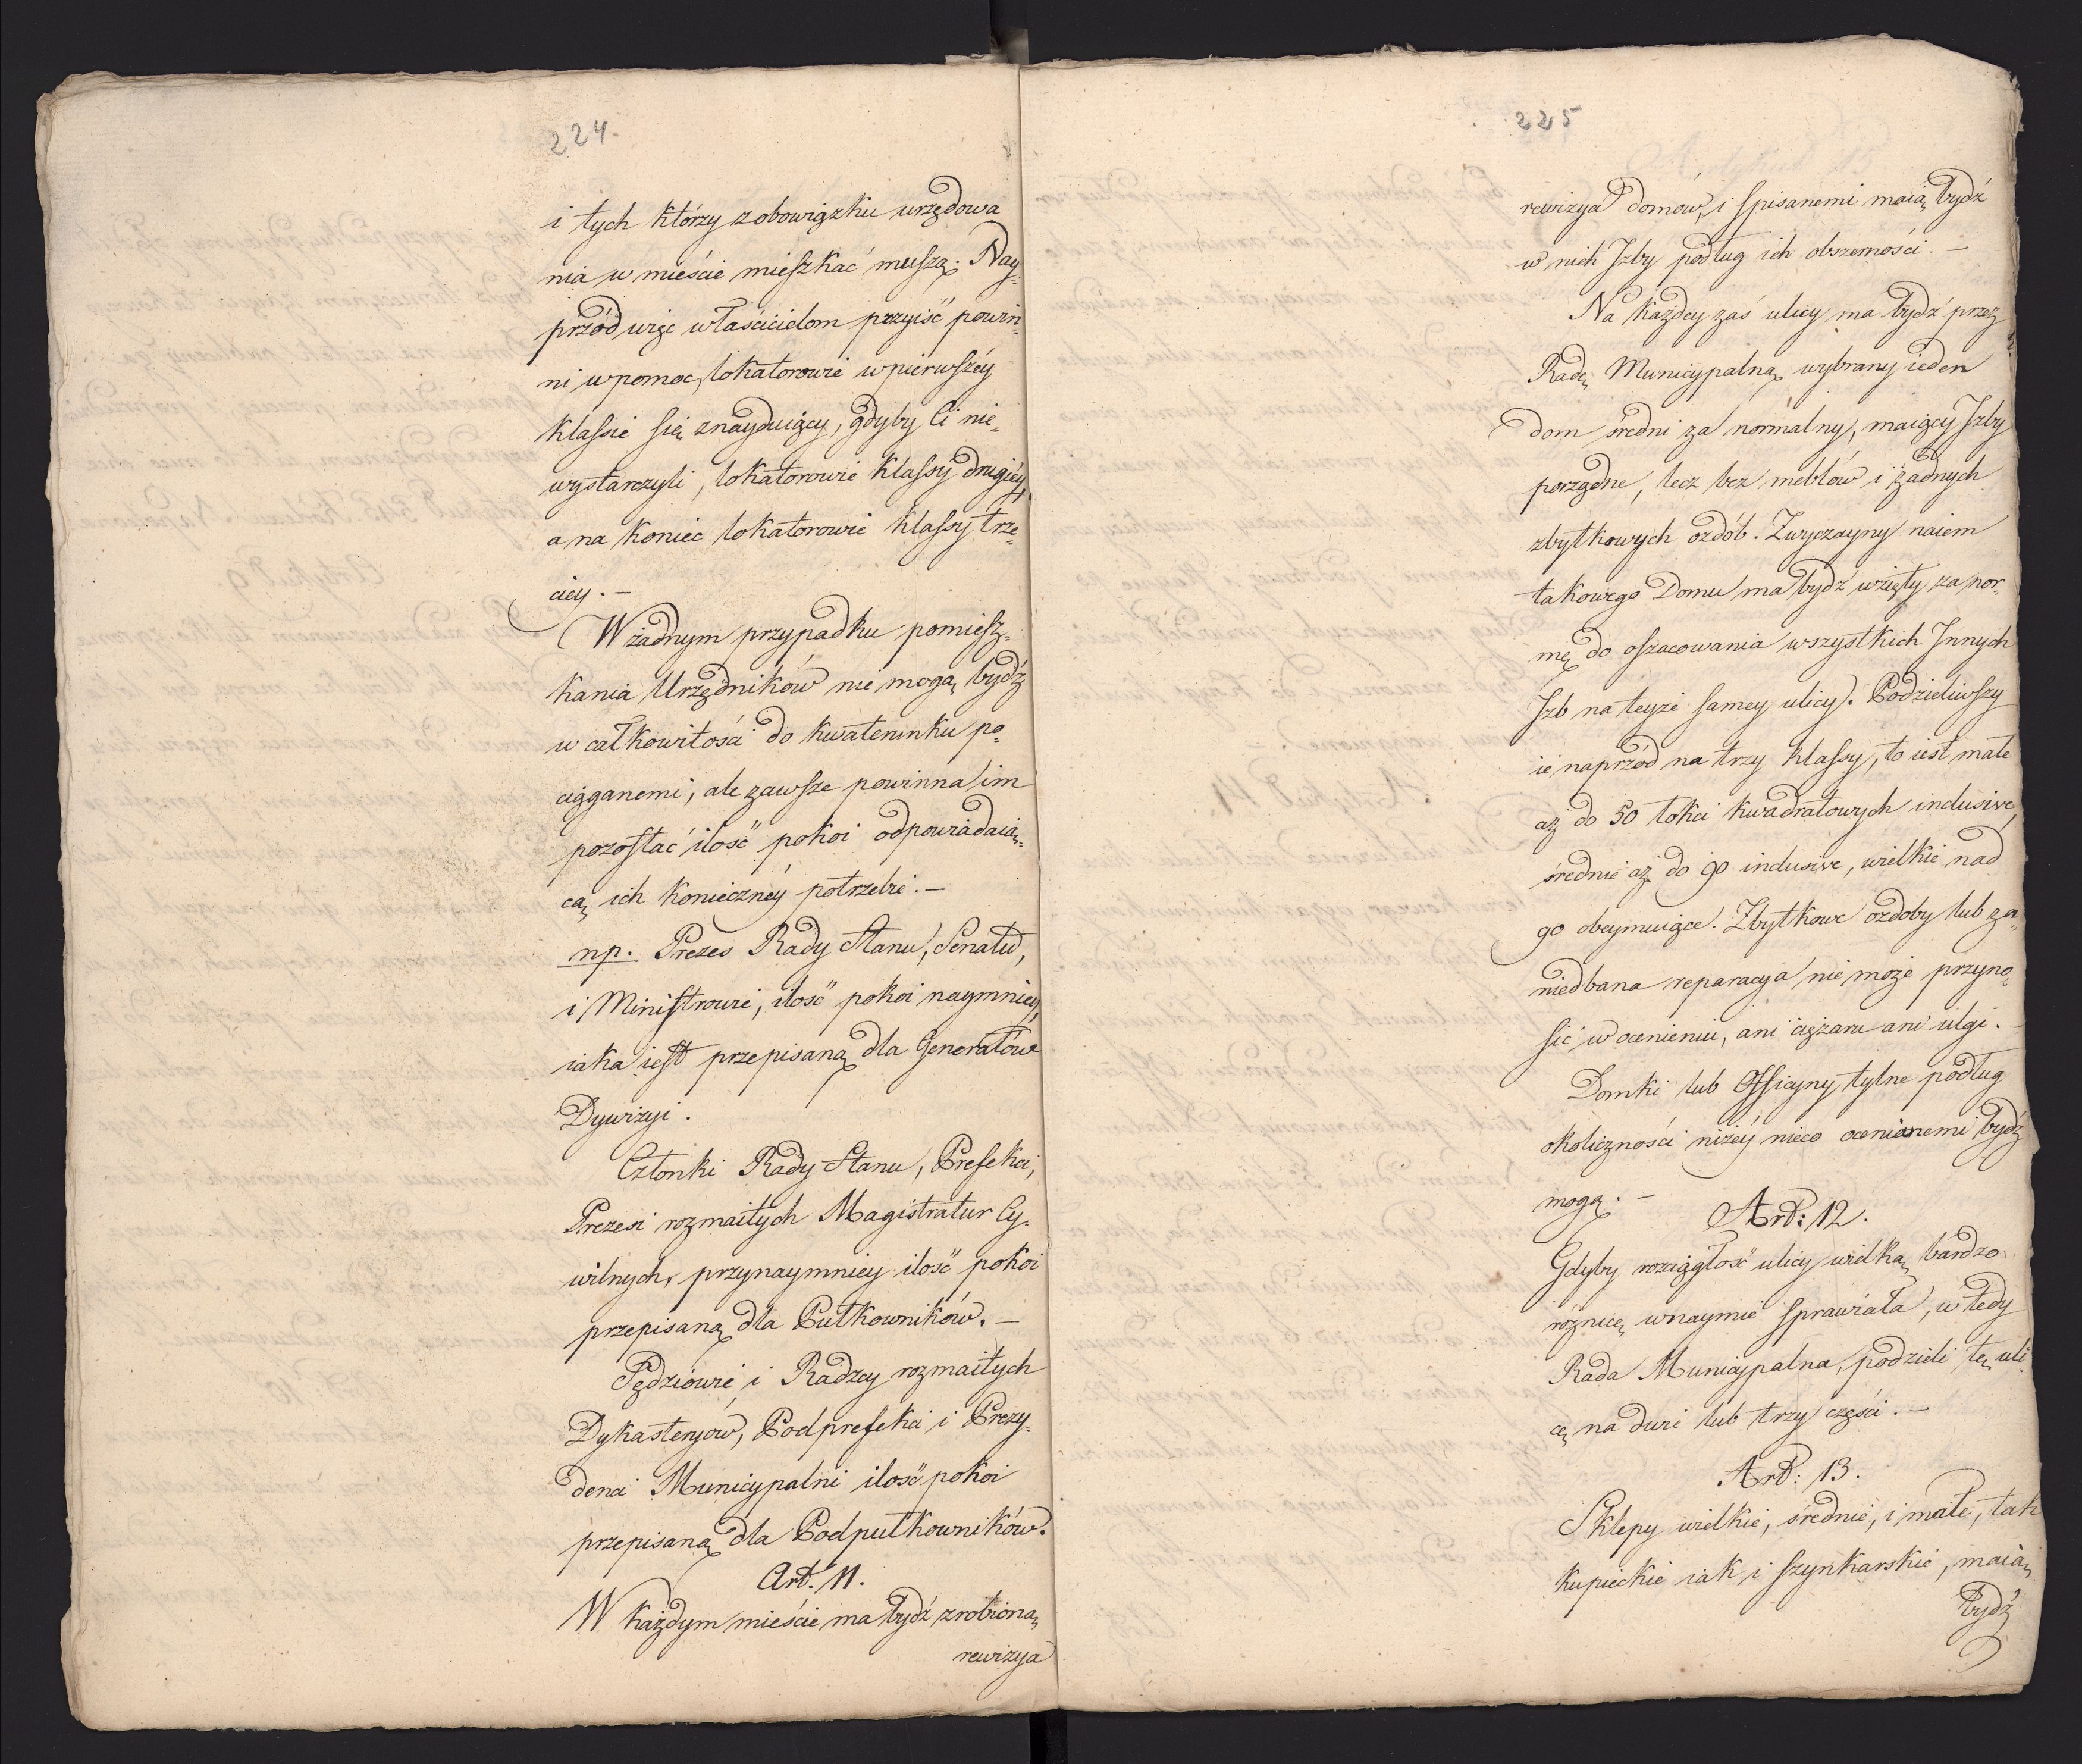 224.
i tych którzy z obowiązku urzędowa
nia w mieście mieszkać muszą. Nay-
przód więc właścicielom przyiść powin-
ni w pomoc, lokatorowie w pierwszéy
klassie się znayduiący, gdyby Ci nie-
wystarczyli, lokatorowie klassy drugiéy,
a na koniec lokatorowie klassy trze-
ciey. –
W żadnym przypadku pomiesz-
kania Urzędników nie mogą bydź
w całkowitości do kwaterunku po-
ciąganemi, ale zawsze powinna im
pozostać ilość pokoi odpowiadaią-
cą ich konieczney potrzebie. –
np. Prezes Rady Stanu, Senatu,
i Ministrowie, ilość pokoi naymniey,
iaka iest przepisaną dla Generałów
Dywizyi.
Członki Rady Stanu, Prefekci,
Prezesi rozmaitych Magistratur Cy-
wilnych, przynaymniey ilość pokoi
przepisaną dla Pułkowników. –
Sędziowie i Radzcy rozmaitych
Dykasteryów, Podprefekci i Prezy-
denci Municypalni ilość pokoi
przepisaną dla Podpułkowników.
Art. 11.
W każdym mieście ma bydź zrobioną
rewizya
225
rewizya domów, i spisanemi maią bydź
w nich Izby podług ich obszerności. –
Na każdey zaś ulicy ma bydź przez
Radę Municypalną wybrany ieden
dom średni za normalny, maiący Izby
porządne, lecz bez meblów i żadnych
zbytkowych ozdób. Zwyczayny naiem
takowego Domu ma bydź wzięty za nor-
mę do oszacowania wszystkich Innych
Izb na teyże samey ulicy. Podzieliwszy
ie naprzód na trzy klassy, to iest małe
aż do 50 łokci kwadratowych inclusive,
średnie aż do 90 inclusive, wielkie nad
90 obeymuiące. Zbytkowe ozdoby lub za-
niedbana reparacya nie może przyno-
sić w ocenieniu, ani ciężaru ani ulgi. –
Domki lub Officyny tylne podług
okoliczności niżéy nieco ocenionemi bydź
mogą. –
Art: 12.
Gdyby rozciągłość ulicy wielką bardzo
różnicę w naymie sprawiała, w tedy
Rada Municypalna, podzieli tę uli
cę na dwie lub trzy części. –
Art: 13.
Sklepy wielkie, średnie, i małe, tak
kupieckie iak i szynkarskie, maią
bydź